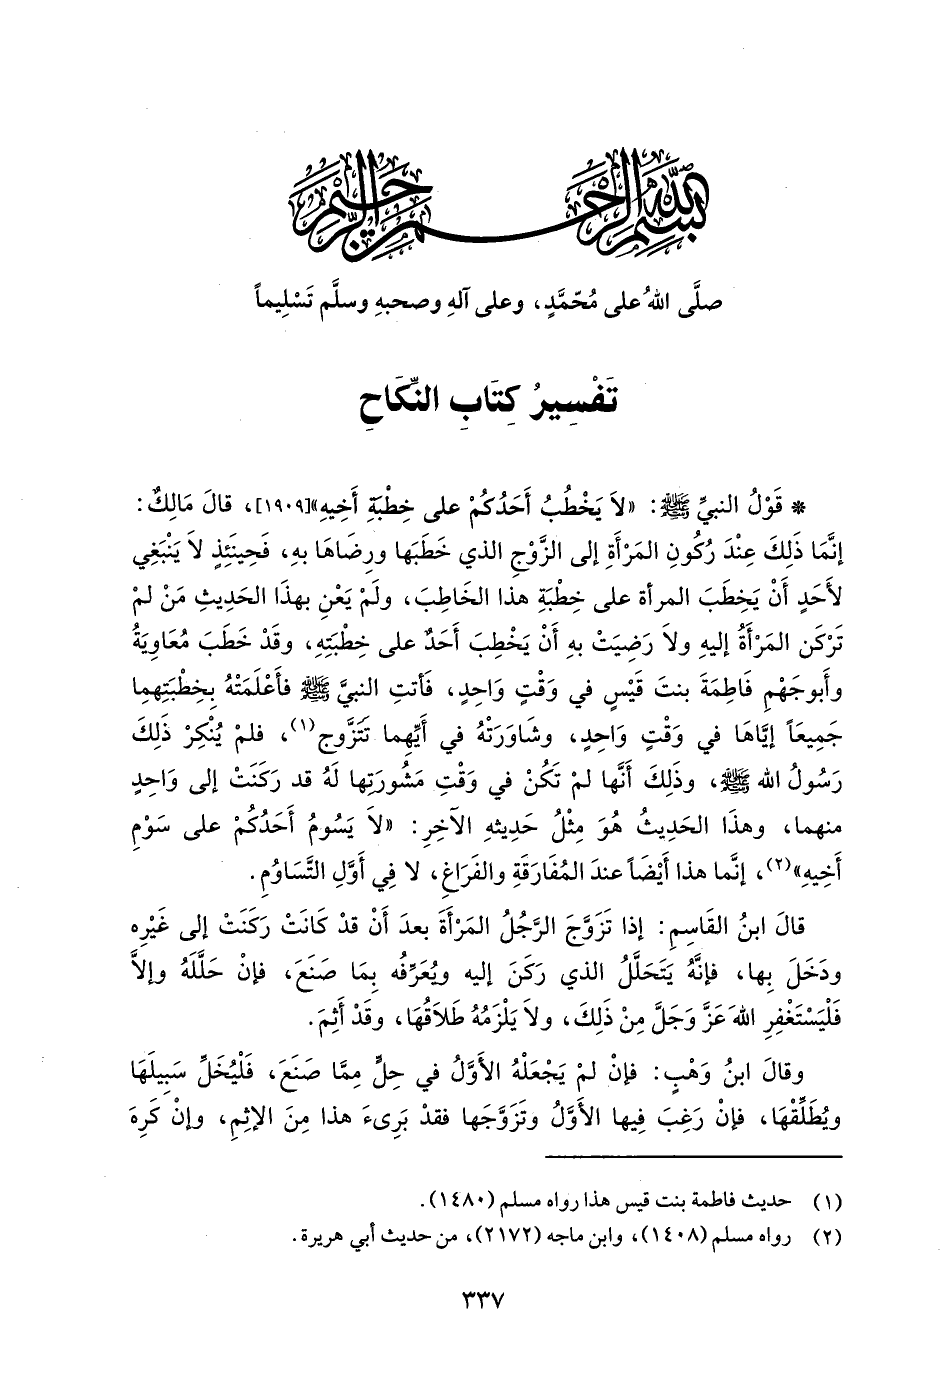 بسم الله الرحمن الرحيم
صلَّى اللهُ على مُحّمَّدٍ، وعلى آلهِ وصحبهِ وسلَّم تَسْلِيماً
تَفْسِيرُ كِتَابِ النِّكَاحِ
* قَوْلُ النبيِّ ﷺ: «لاَ يَخْطُبُ أَحَدُكُمْ على خِطْبَةِ أَخِيهِ»[١٩٠٩]، قالَ مَالِكٌ:
إنَّمَا ذَلِكَ عِنْدَ رُكُونِ المَرْأَةِ إلى الزَّوْجِ الذي خَطَبَها ورِضَاهَا بهِ، فَحِينَئِذٍ لاَ يَنْبَغِي
لأَحَدٍ أَنْ يَخِطَبَ المرأة على خِطْبَةِ هذا الخَاطِبَ، ولَمْ يَعْنِ بهذَا الحَدِيثِ مَنْ لمْ
تَرْكَن المَرْأَةُ إليهِ ولاَ رَضِيَتْ به أَنْ يَخْطِبَ أَحَدٌ على خِطْبَتِهِ، وقَدْ خَطَبَ مُعَاوِيَةُ
وأَبوجَهْمٍ فَاطِمَةَ بنتَ قَيْسٍ في وَقْتٍ وَاحِدٍ، فَأَتتِ النبيَّ ﷺ فأَعْلَمَتْهُ بِخِطْبَتِهِما
جَمِيعَاً إيَّاهَا في وَقْتٍ وَاحِدٍ، وشَاوَرَتْهُ في أَيِّهِما تَتَزَّوج(١)، فلمْ يُنْكِرْ ذَلِكَ
رَسُولُ الله ﷺ، وذَلِكَ أَنَّها لمْ تَكُنْ في وَقْتِ مَشُورَتِها لَهُ قد رَكَنَتْ إلى وَاحِدٍ
منهما، وهذَا الحَدِيثُ هُوَ مِثْلُ حَدِيثهِ الآخِرِ: «لاَ يَسُومُ أَحَدُكُمْ على سَوْمِ
أَخِيهِ»(٢)، إنَّما هذا أَيْضَاً عندَ المُفَارَقَةِ والفَرَاغِ، لا فِي أَوَّلِ التَّسَاوُمِ.
قالَ ابنُ القَاسِمِ: إذا تَزَوَّجَ الرَّجُلُ المَرْأَةَ بعدَ أَنْ قدْ كَانَتْ رَكَنَتْ إلى غَيْرِه
ودَخَلَ بِها، فإنَّهُ يَتَحَلَّلُ الذي رَكَنَ إليه ويُعَرِّفُه بِمَا صَنَعَ، فإنْ حَلَّلَهُ وإلاَّ
فَلْيَسْتَغْفِرِ اللهَ عَزَّ وَجَلَّ مِنْ ذَلِكَ، ولاَ يَلْزَمُهُ طَلاَقُهَا، وقَدْ أَثِمَ.
وقالَ ابنُ وَهْبٍ: فإنْ لمْ يَجْعَلْهُ الأَوَّلُ في حِلٍّ مِمَّا صَنَعَ، فَلْيُخَلِّ سَبِيلَهَا
ويُطَلِّقْهَا، فإنْ رَغِبَ فِيها الأَوَّلُ وتَزَوَّجَها فقدْ بَرِىءَ هذا مِنَ الإثِمِ، وإنْ كَرِهَ
(١) حديث فاطمة بنت قيس هذا رواه مسلم (١٤٨٠).
(٢) رواه مسلم (١٤٠٨)، وابن ماجه (٢١٧٢)، من حديث أبي هريرة.
٣٣٧